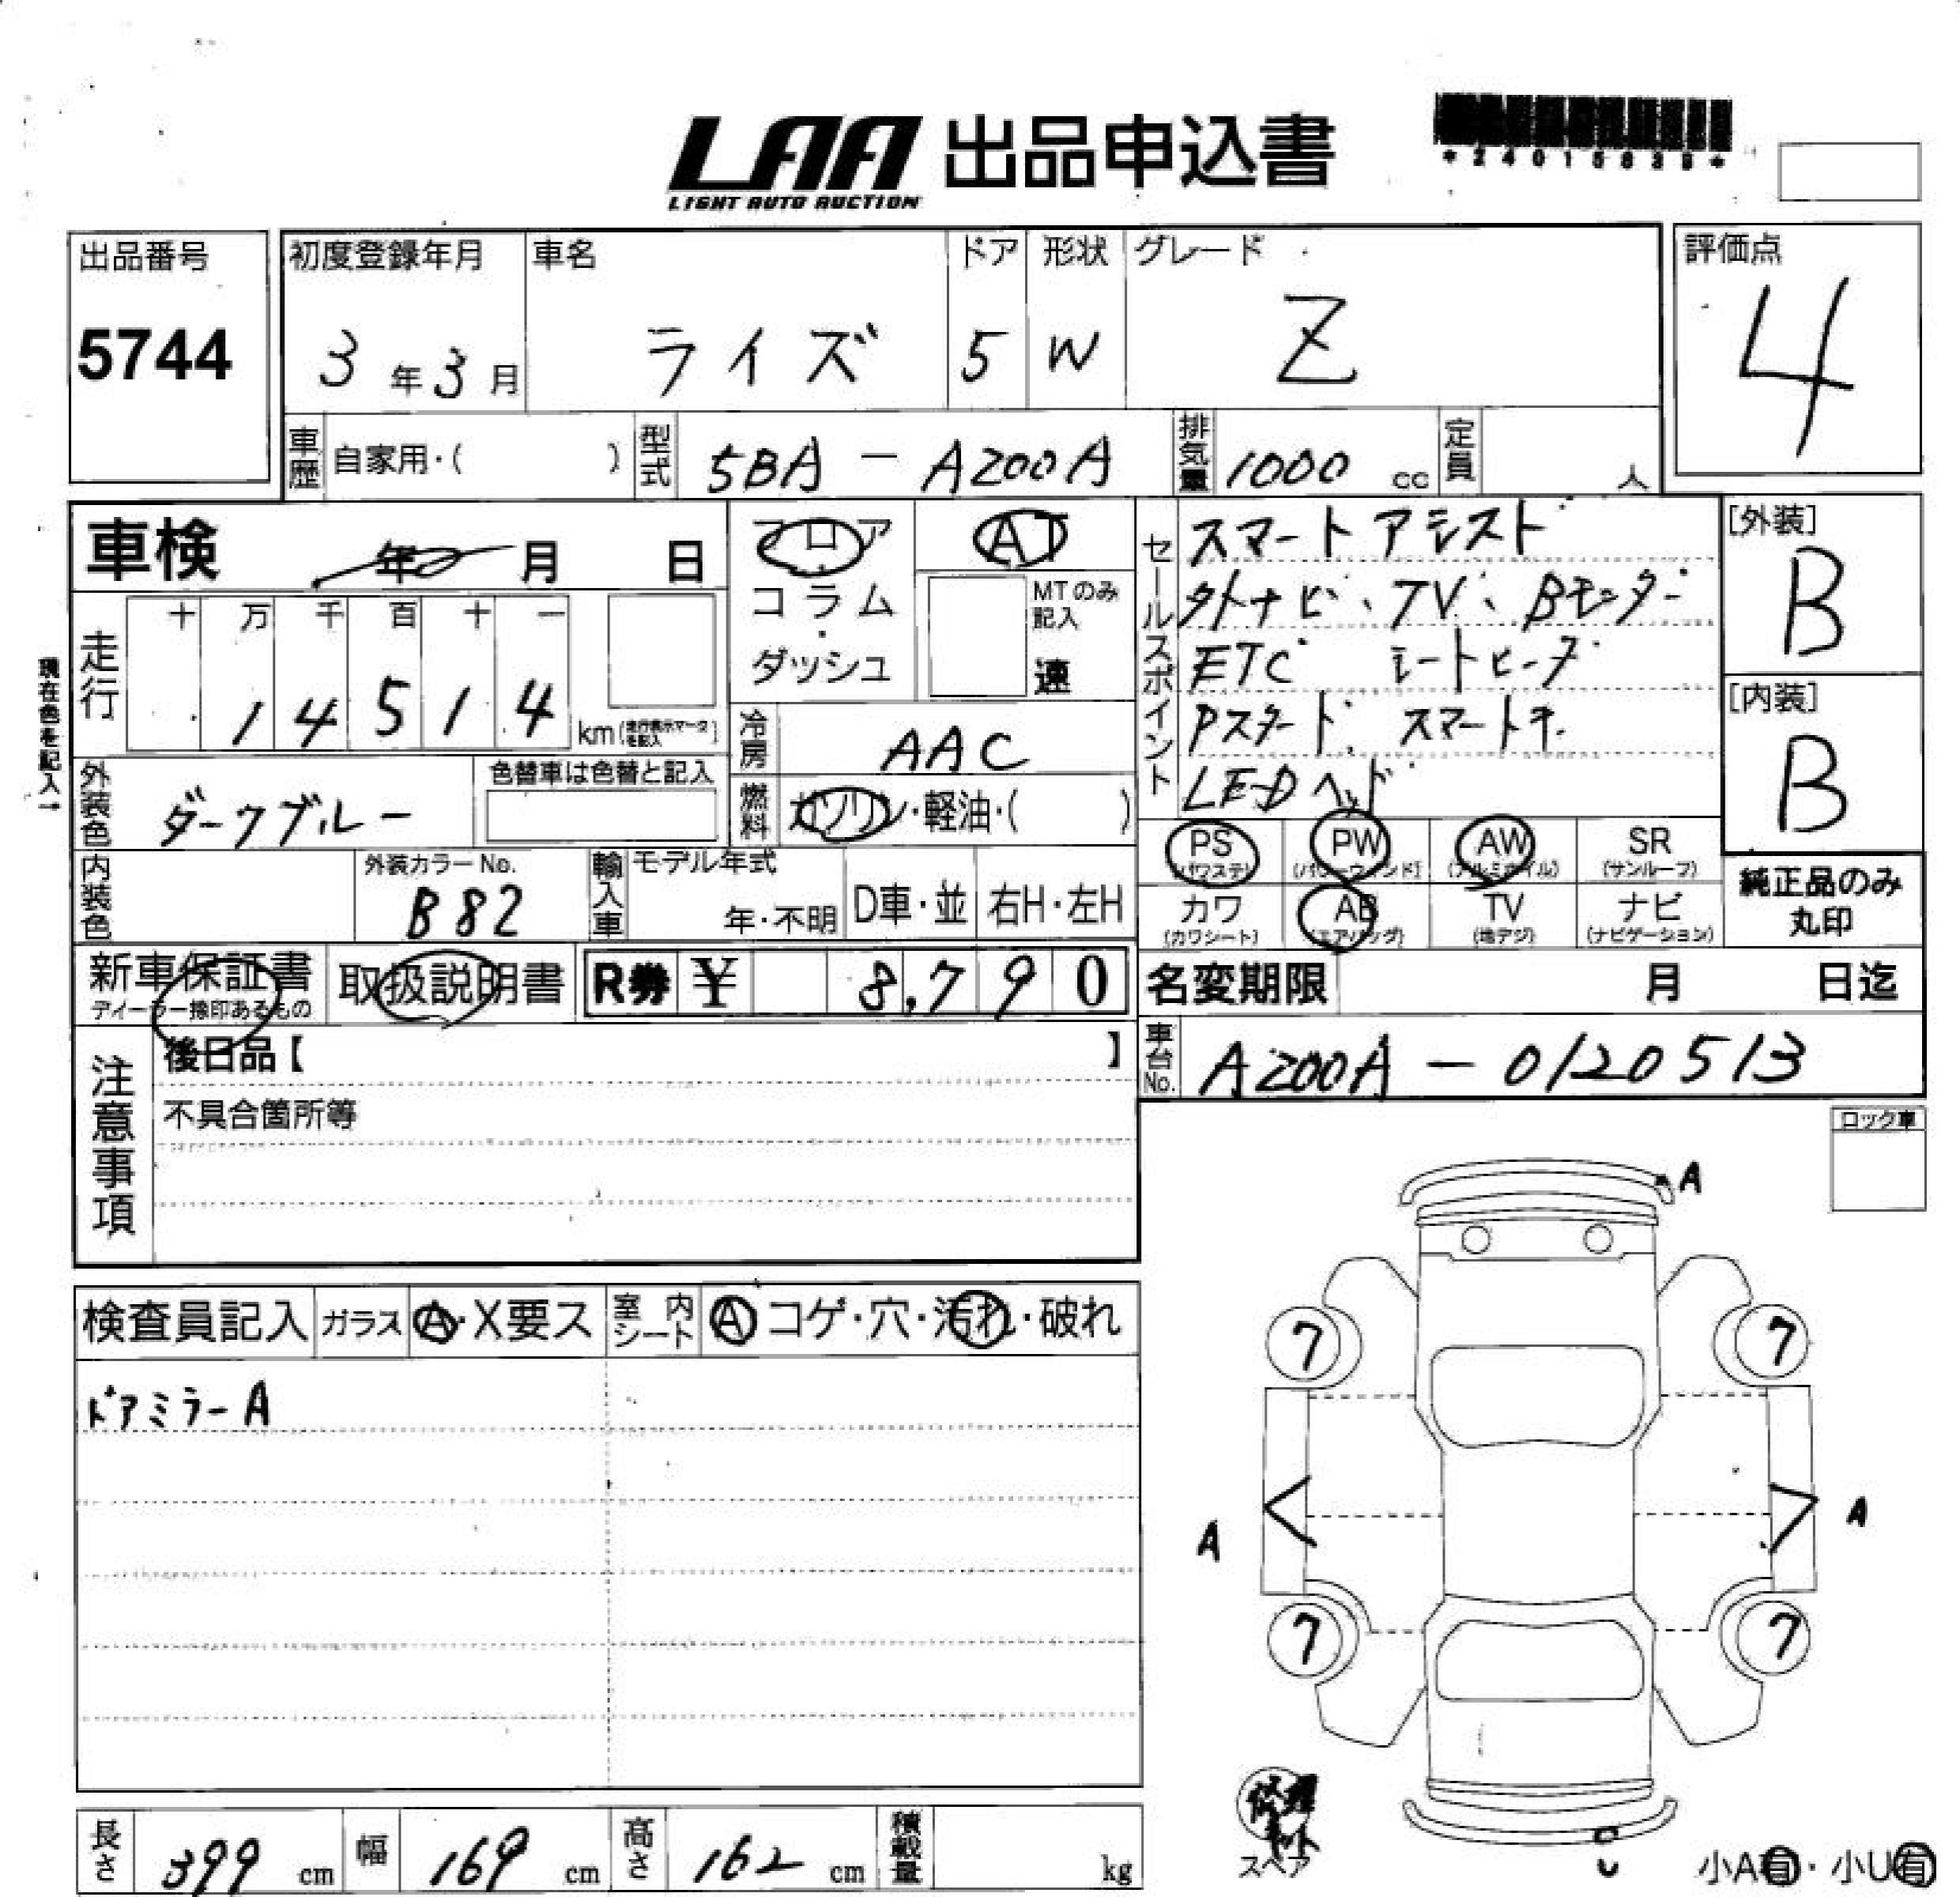 LAA 出品申込書
LIGHT AUTO AUCTION
出品番号
5744
初度登録年月
3年3月
車名
ライズ
ドア
5
形状
W
グレード
Z
評価点
4
車歴 自家用・( )
型式 5BA - A200A
排気量 1000 cc
定員 人
車検 年 月 日
フロア
コラム
ダッシュ
AT
MTのみ
記入
速
セールスポイント
スマートアシスト
外ナビ、TV、Bモニター
ETC シートヒーター
Pスタート、スマートキー
LEDヘッド
[外装]
B
[内装]
B
現在色を記入→
走行
十 万 千 百 十 一
1 4 5 1 4 km(走行表示マークを記入)
冷房 AAC
外装色 ダークブルー
色替車は色替と記入
燃料 ガソリン・軽油・( )
PS (パワステ)
PW (パワーウィンド)
AW (アルミホイル)
SR (サンルーフ)
カワ (カワシート)
AB (エアバッグ)
TV (地デジ)
ナビ (ナビゲーション)
純正品のみ
丸印
内装色
外装カラーNo.
B82
輸入車
モデル年式
年・不明
D車・並
右H・左H
新車保証書
ディーラー捺印あるもの
取扱説明書
R券 ¥ 8,790
名変期限 月 日迄
車台No. A200A - 0120513
注意事項
後日品【 】
不具合箇所等
ロック車
検査員記入
ガラス A・X要ス
室内シート A コゲ・穴・汚れ・破れ
ドアミラーA
A
7 7
A A
7 7
修理キット
スペア
U
小A有・小U有
長さ 399 cm
幅 169 cm
高さ 162 cm
積載量 kg